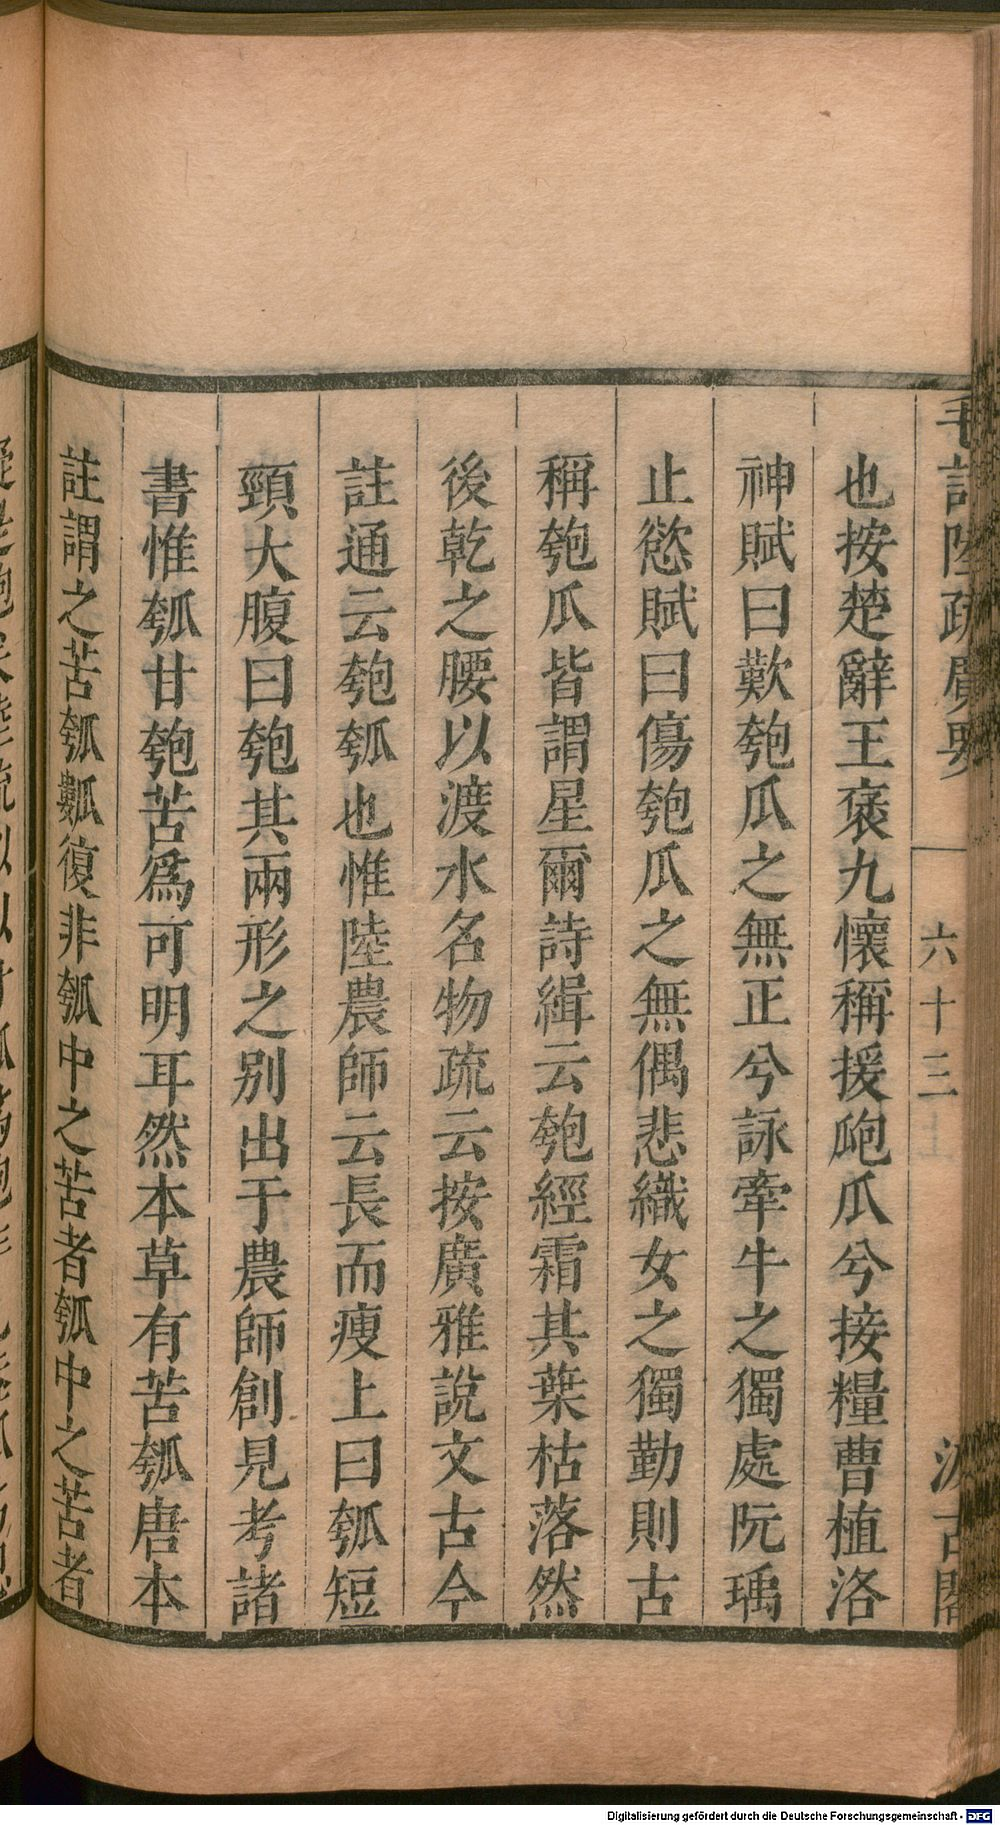 毛詩陸疏廣要 六十三 汲古閣
也按楚辭王褒九懷稱援瓟瓜兮接糧曹植洛
神賦曰歎匏瓜之無正兮詠牽牛之獨處阮瑀
止慾賦曰傷匏瓜之無偶悲織女之獨勤則古
稱匏瓜皆謂星爾詩緝云匏經霜其葉枯落然
後乾之腰以渡水名物疏云按廣雅說文古今
註通云匏瓠也惟陸農師云長而瘦上曰瓠短
頸大腹曰匏其兩形之別出于農師創見考諸
書惟瓠甘匏苦爲可明耳然本草有苦瓠唐本
註謂之苦瓠甊復非瓠中之苦者瓠中之苦者
Digitalisierung gefördert durch die Deutsche Forschungsgemeinschaft - DFG